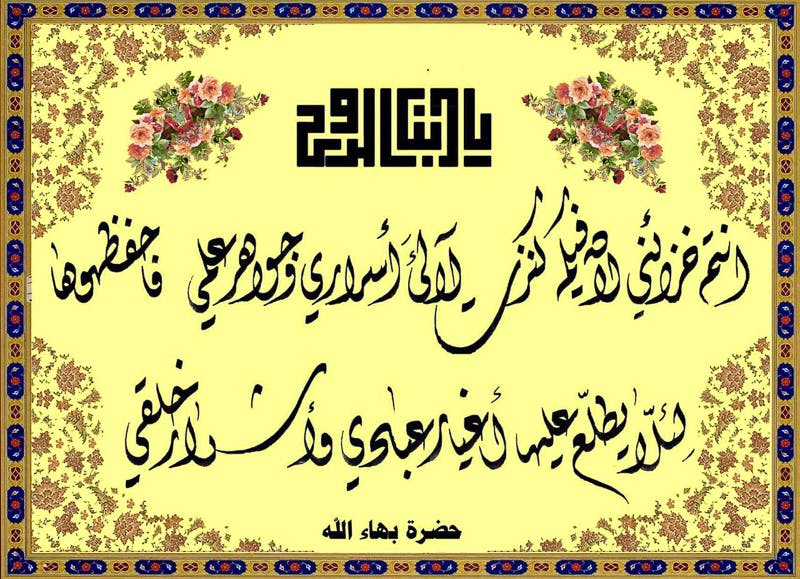 يا ابناء الروح
انتم خزائني لان فيكم كنزت لآلئ أسراري وجواهر علمي فاحفظوها
لئلّا يطلّع عليها أغيار عبادي وأشرار خلقي
حضرة بهاء الله